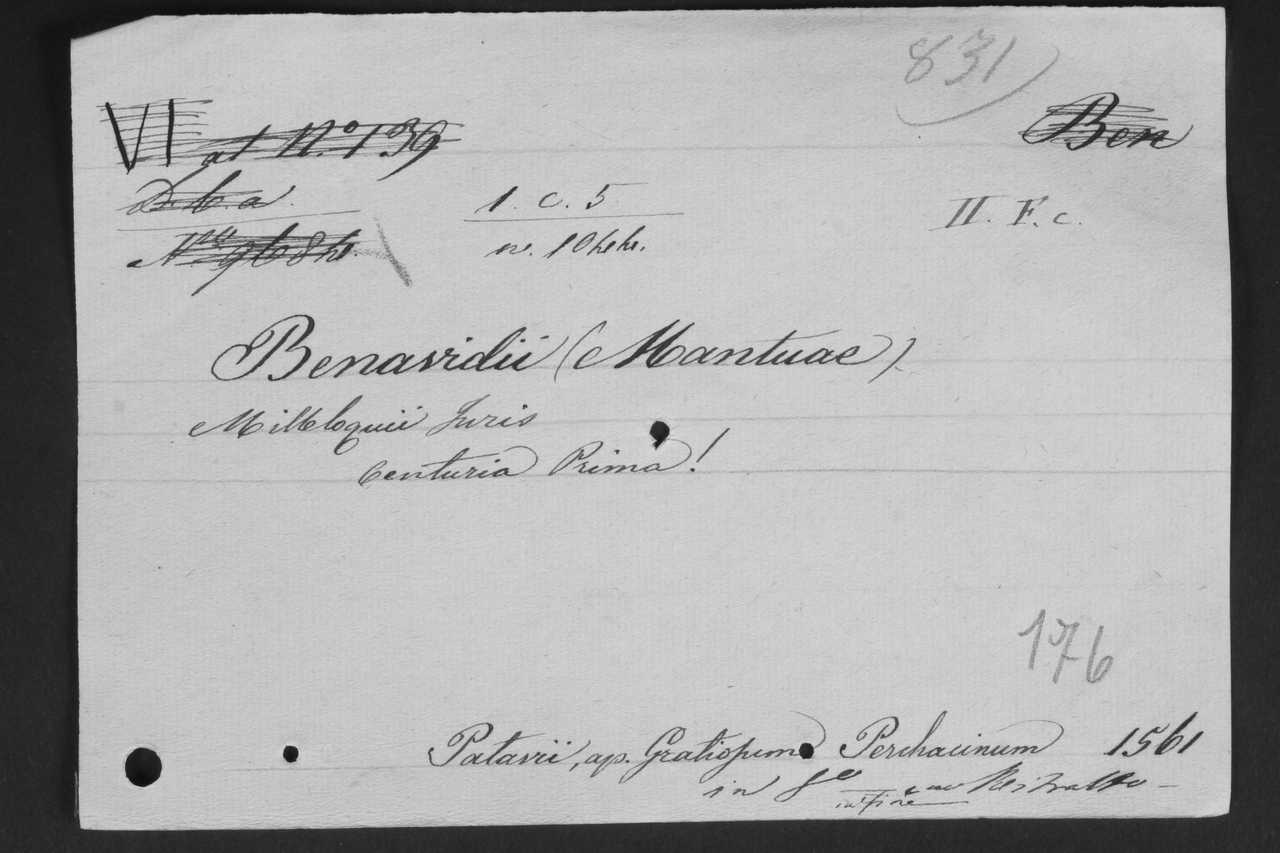 831
VI at N.o 139
Ben
D. b. a.
1. c. 5
II. F. c.
in. 10
Benavidii (Mantuae)
Milleloquii Juris
Centuria Prima!
176
Patavii, ap. Gratiosum Perchacinum 1561
in 8o in fine con Ritratto